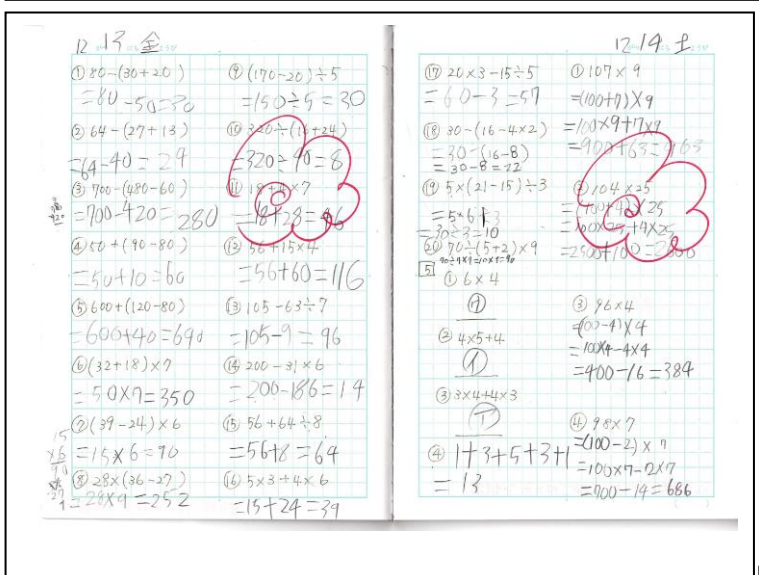 12 13 金
① 80-(30+20)
=80-50=30
② 64-(27+13)
=64-40=24
③ 700-(480-60)
=700-420=280
④ 50+(90-80)
=50+10=60
⑤ 600+(120-80)
=600+40=640
⑥ (32+18)×7
=50×7=350
⑦ (39-24)×6
=15×6=90
⑧ 28×(36-27)
=28×9=252
⑨ (170-20)÷5
=150÷5=30
⑩ 320÷(16+24)
=320÷40=8
⑪ 18+4×7
=18+28=46
⑫ 56+15×4
=56+60=116
⑬ 105-63÷7
=105-9=96
⑭ 200-31×6
=200-186=14
⑮ 56+64÷8
=56+8=64
⑯ 5×3+4×6
=15+24=39
12 14 土
⑰ 20×3-15÷5
=60-3=57
⑱ 30-(16-4×2)
=30-(16-8)
=30-8=22
⑲ 5×(21-15)÷3
=5×6÷3
=30÷3=10
⑳ 70÷(5+2)×9
70÷7×9=10×9=90
5
① 6×4
② 4×5+4
③ 3×4+4×3
④ 1+3+5+3+1
=13
① 107×9
=(100+7)×9
=100×9+7×9
=900+63=963
② 104×25
=(100+4)×25
=100×25+4×25
=2500+100=2600
③ 96×4
=(100-4)×4
=100×4-4×4
=400-16=384
④ 98×7
=(100-2)×7
=100×7-2×7
=700-14=686